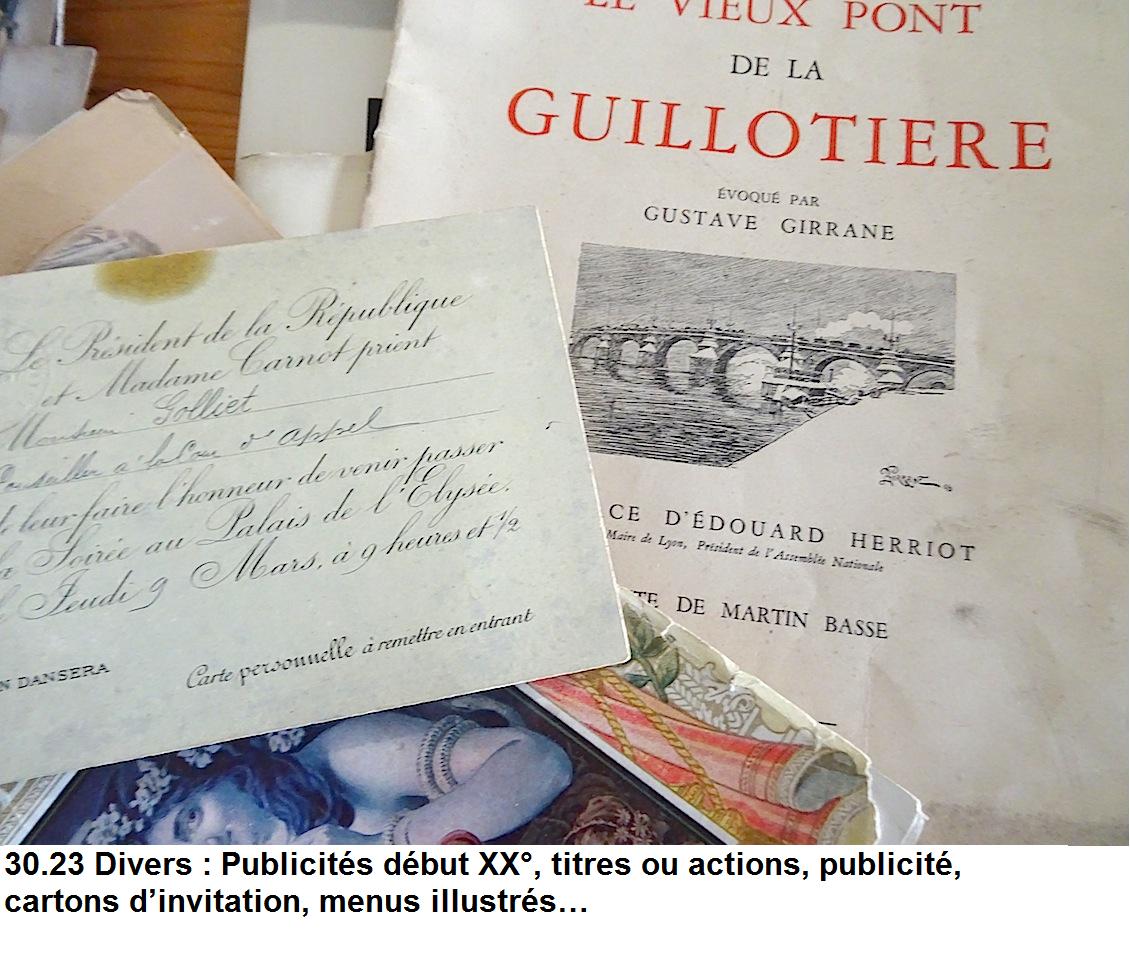 LE VIEUX PONT
DE LA
GUILLOTIERE
ÉVOQUÉ PAR
GUSTAVE GIRRANE
CE D'ÉDOUARD HERRIOT
Maire de Lyon, Président de l'Assemblée Nationale
TE DE MARTIN BASSE
Le Président de la République
et Madame Carnot prient
Monsieur Golliet
Conseiller à la Cour d'appel
leur faire l'honneur de venir passer
la Soirée au Palais de l'Elysée.
Jeudi 9 Mars, à 9 heures et 1/2
N DANSERA
Carte personnelle à remettre en entrant
30.23 Divers : Publicités début XX°, titres ou actions, publicité,
cartons d'invitation, menus illustrés…